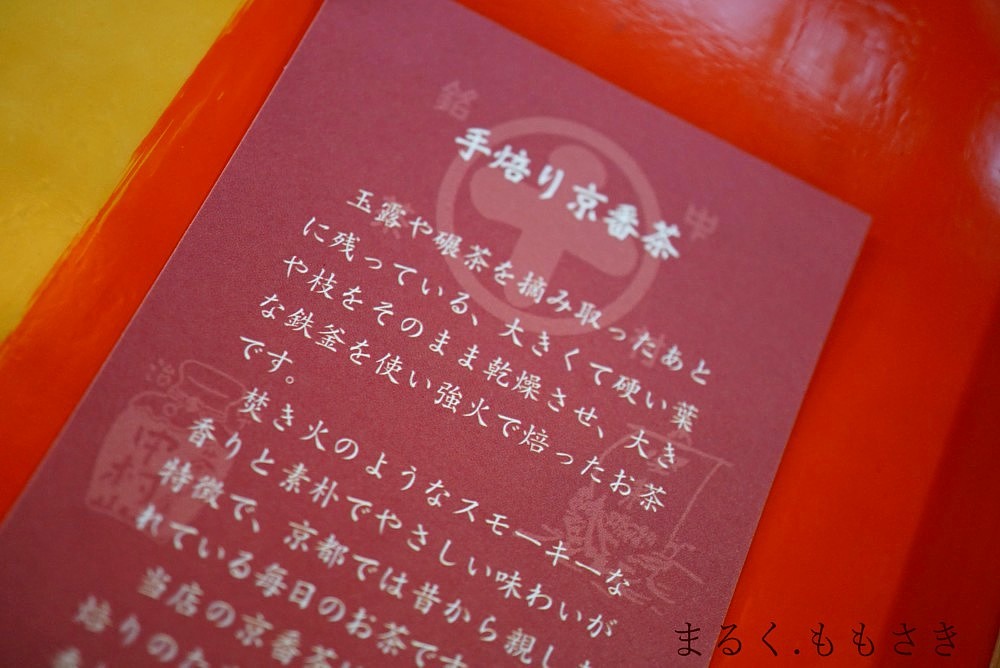 手焙り京番茶
玉露や碾茶を摘み取ったあと
に残っている、大きくて硬い葉
や枝をそのまま乾燥させ、大き
な鉄釜を使い強火で焙ったお茶
です。
焚き火のようなスモーキーな
香りと素朴でやさしい味わいが
特徴で、京都では昔から親しま
れている毎日のお茶です
当店の京番茶は
焙りのため
銘
中
治
まるく.ももさき